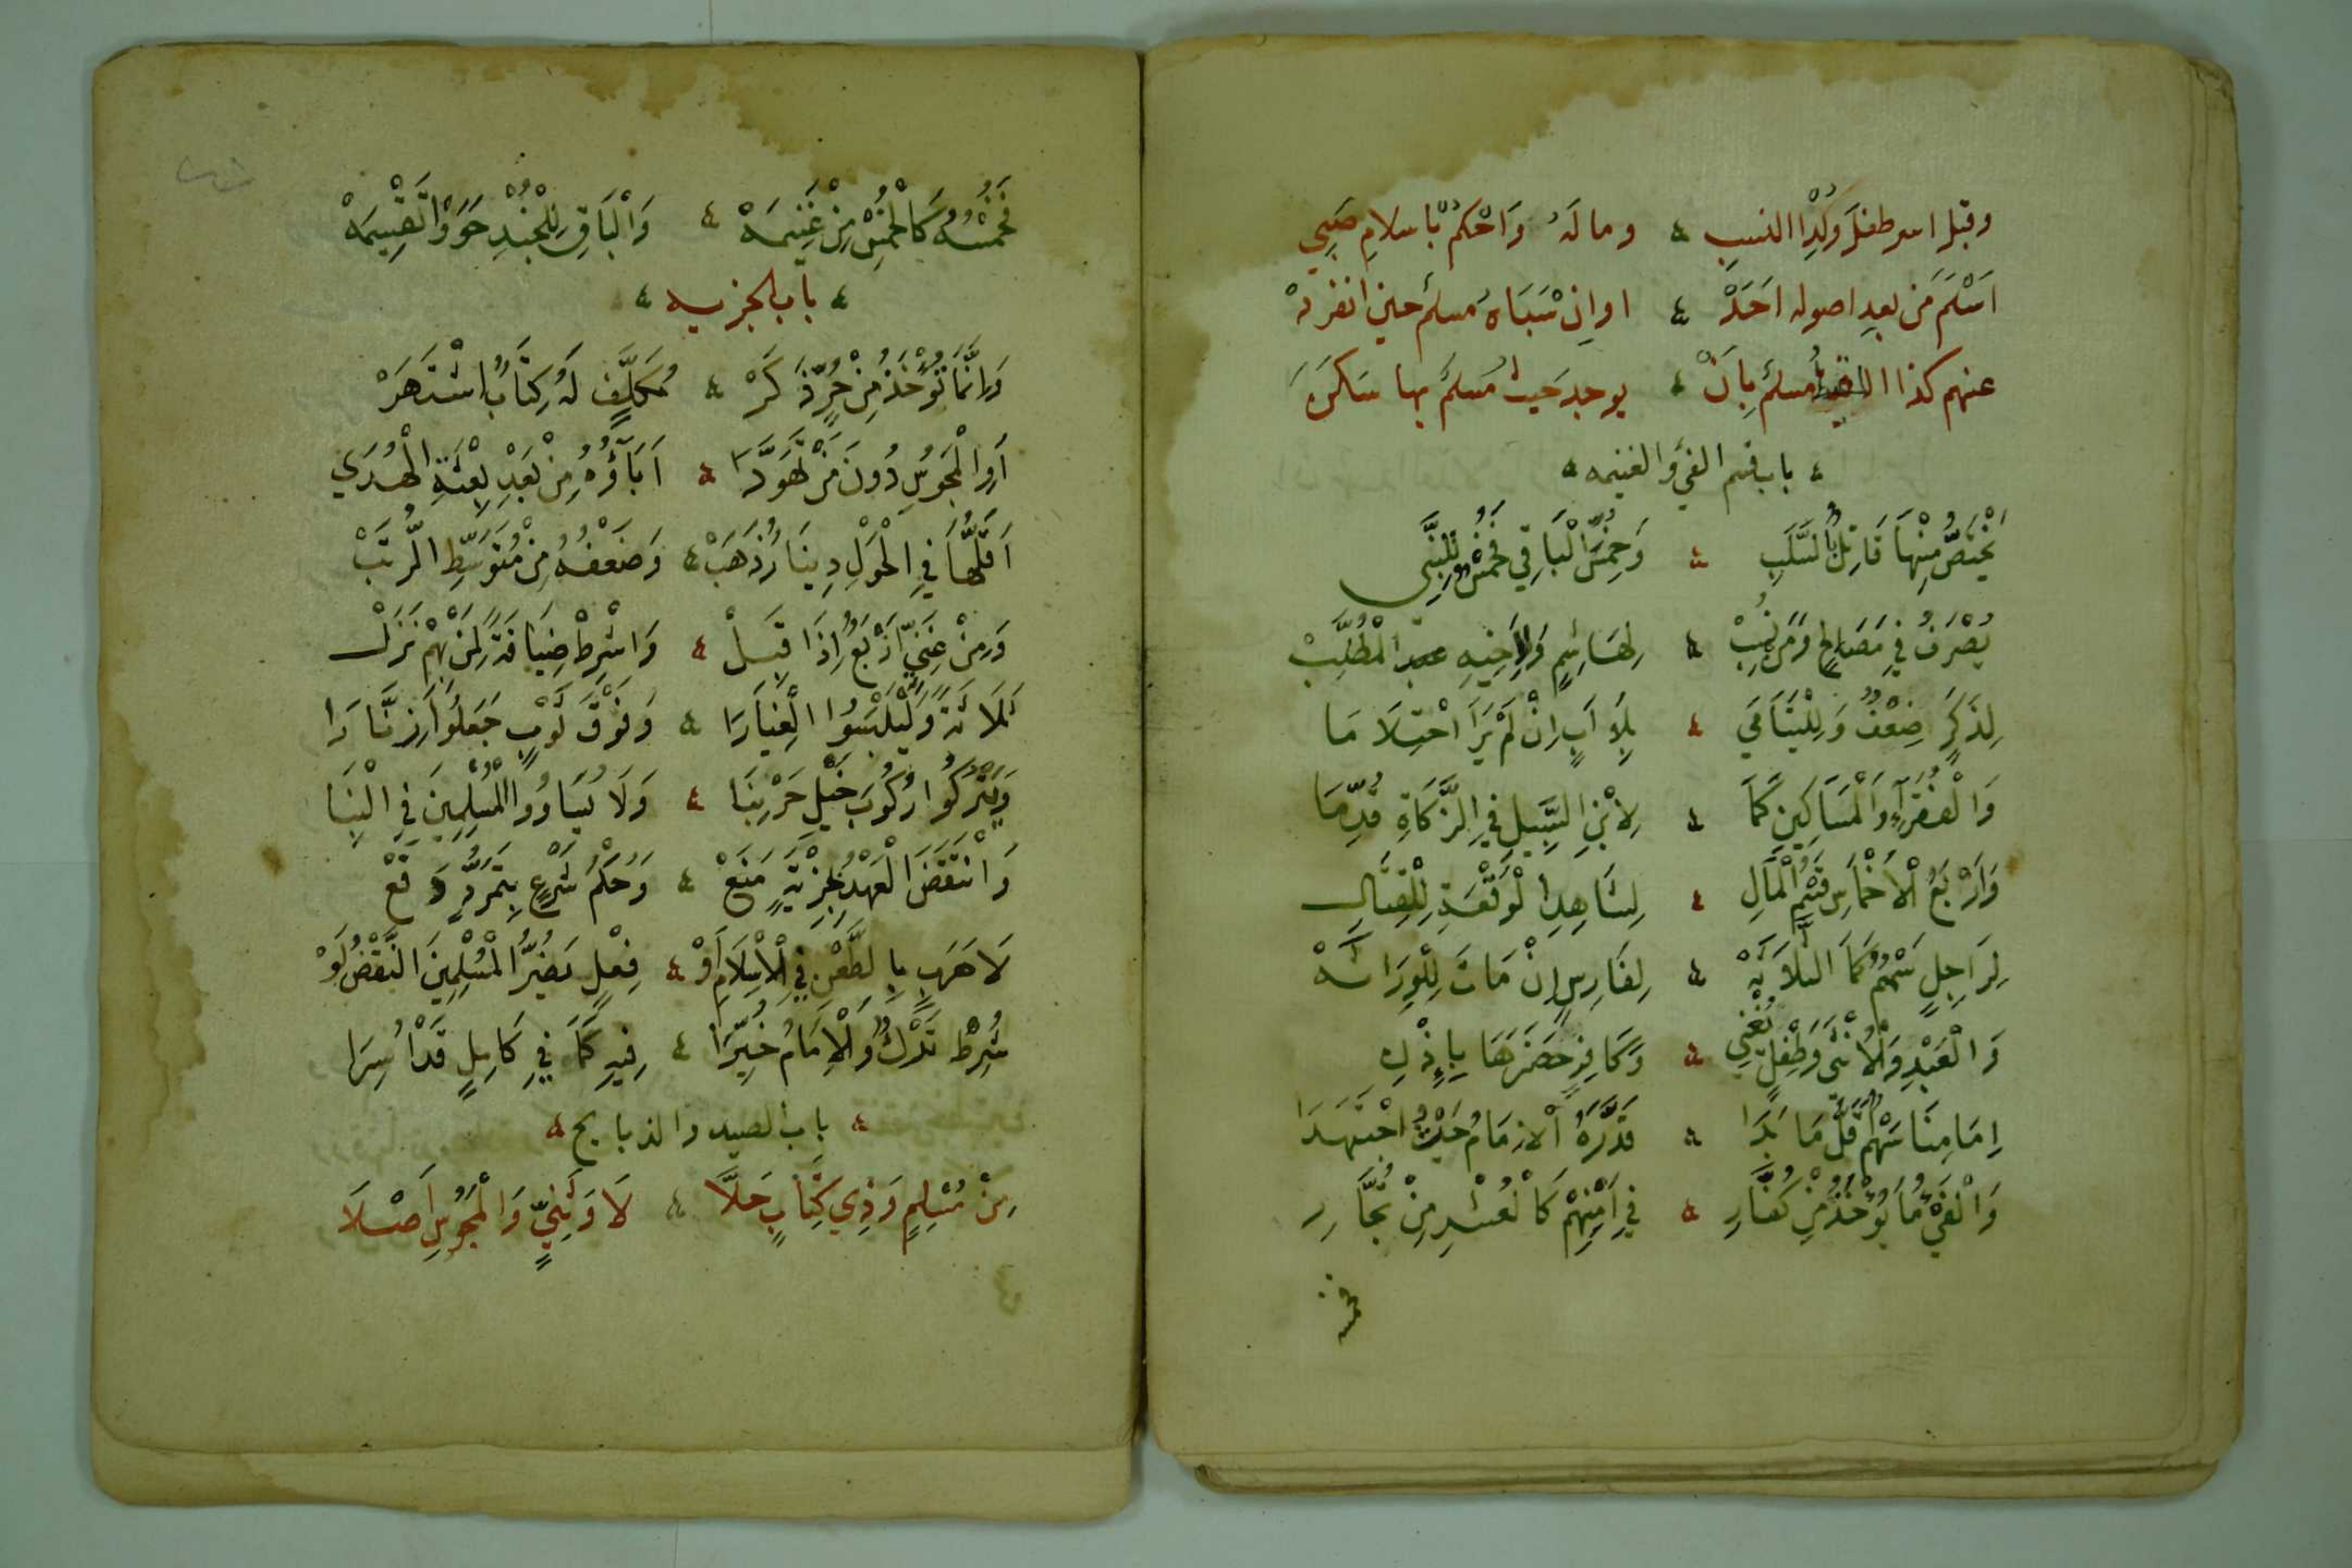 وقبل اسر طفلَ وَلَدِْ النسبِ ٤ ومالَهُ وَاحْكمْ بْاسلامِ صَبِي
اَسْلَمَ مَن بعدِ اصوله اَحَدْ ٤ او انْ سَبَاهُ مسلم حين انفردْ
عنهم كذا اللقيط مسلم بِاَنْ ٤ يوجد حَيثُ مُسلمٌ بها سَكَنَ
٤ باب قسم الفئ والغنيمه ٤
يَخْتَصُّ مِنْهَا قَاتِلٌ بِالسَّلَبِ ٤ وَخُمِّسَ الْبَاقِي فَخُمْسٌ لِلنَّبِي
يُصْرَفُ فِي مَصَالِحٍ وَمَنْ نُسِبْ ٤ لِهَاشِمٍ وَلِأَخِيهِ عبد الْمُطَّلِبْ
لِذَكَرٍ ضِعْفٌ وَلِلْيَتَامَي ٤ بِلَا اَبٍ اِنْ لَمْ يَرَ احْتِلَامَا
وَالْفُقَرَآءِ وَالْمَسَاكِينِ كَمَا ٤ لِابْنِ السَّبِيلِ فِي الزَّكَاةِ قُدِّمَا
وَاَرْبَعُ الْاَخْمَاسِ قَسْمُ الْمَالِ ٤ لِشَاهِدِ الْوَقْعَةِ لِلْقِتَالِ
لِرَاجِلٍ سَهْمٌ كَمَا الثَّلَاثَهْ ٤ لِفَارِسٍ اِنْ مَاتَ لِلْوِرَاثَهْ
وَالْعَبْدِ وَالْاُنْثَى وَطِفْلٍ يُغْنِي ٤ وَكَافِرٍ حَضَرَهَا بِاِذْنِ
اِمَامِنَا سَهْمٌ اَقَلُّ مَا بَدَا ٤ قَدَّرَهُ الْاِمَامُ حَيْثُ اجْتَهَدَا
وَالْفَيْءُ مَا يُؤْخَذُ مِنْ كُفَّارِ ٤ فِي اَمْنِهِمْ كَالْعُشْرِ مِنْ تُجَّارِ
فخمسه
فَخُمْسُهُ كَالْخُمْسِ مِنْ غَنِيمَهْ ٤ وَالْبَاقِ لِلْجُنْدِ حَوَوْا تَقْسِيمَهْ
٤ باب الجزيه ٤
وَاِنَّمَا تُؤْخَذُ مِنْ حُرٍّ ذَكَرْ ٤ مُكَلَّفٍ لَهُ كِتَابٌ اشْتَهَرْ
اَوِ الْمَجُوسِ دُونَ مَنْ تَهَوَّدَا ٤ اَبَآؤُهُ مِنْ بَعْدِ بِعْثَةِ الْهُدَي
اَقَلُّهَا فِي الْحَوْلِ دِينَارٌ ذَهَبْ ٤ وَضِعْفُهُ مِنْ مُتَوَسِّطِ الرُّتَبْ
وَمِنْ غَنِيٍّ اَرْبَعٌ اِذَا قَبِلْ ٤ وَاشْرِطْ ضِيَافَةً لِمَنْ بِهِمْ نَزَلْ
ثَلَاثَةً وَلْيَلْبَسُوا الْغِيَارَا ٤ وَفَوْقَ ثَوْبٍ جَعَلُوا زِنَّارَا
وَيَتْرُكُوا رُكُوبَ خَيْلِ حَرْبِنَا ٤ وَلَا يُسَاوُوا الْمُسْلِمِينَ فِي الْبِنَا
وَانْتَقَضَ الْعَهْدُ بِجِزْيَةٍ مَنَعْ ٤ وَحُكْمُ شَرْعٍ بِتَمَرُّدٍ وَقَعْ
لَا هَرَبٍ بِالطَّعْنِ فِي الْاِسْلَامِ اَوْ ٤ فِعْلٍ يَضُرُّ الْمُسْلِمِينَ النَّقْضُ لَوْ
شُرِطْ تَرْكٌ وَالْاِمَامُ خُيِّرَا ٤ فِيهِ كَمَا فِي كَامِلٍ قَدْ اُسِرَا
٤ باب الصيد والذبايح ٤
مِنْ مُسْلِمٍ وَذِي كِتَابٍ حَلَّا ٤ لَا وَثَنِيٍّ وَالْمَجُوسِ اَصْلَا